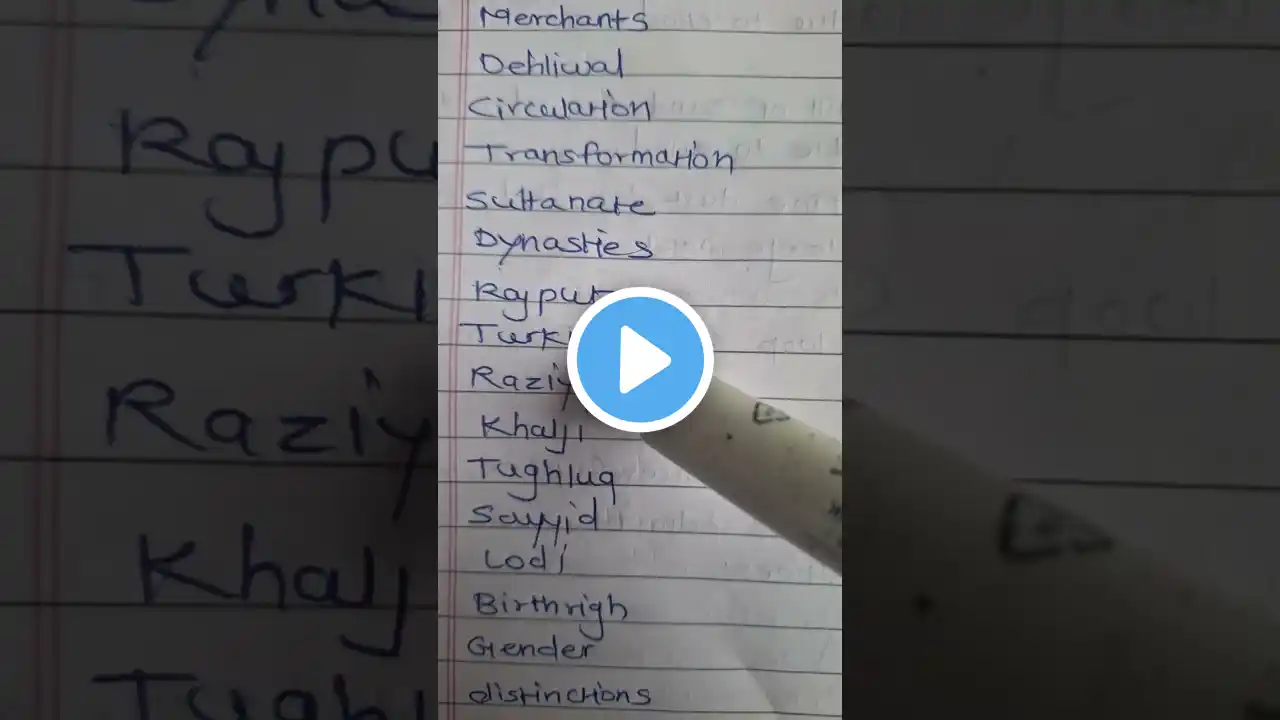 Merchants
Dehliwal
Circulation
Transformation
Sultanate
Dynasties
Rajput
Khalji
Tughluq
Sayyid
Lodi
Birthrigh
Gender
distinctions